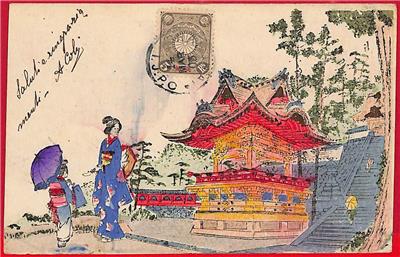 Saluti e ringrazia
menti -
A. Celi
I.J.P.O.